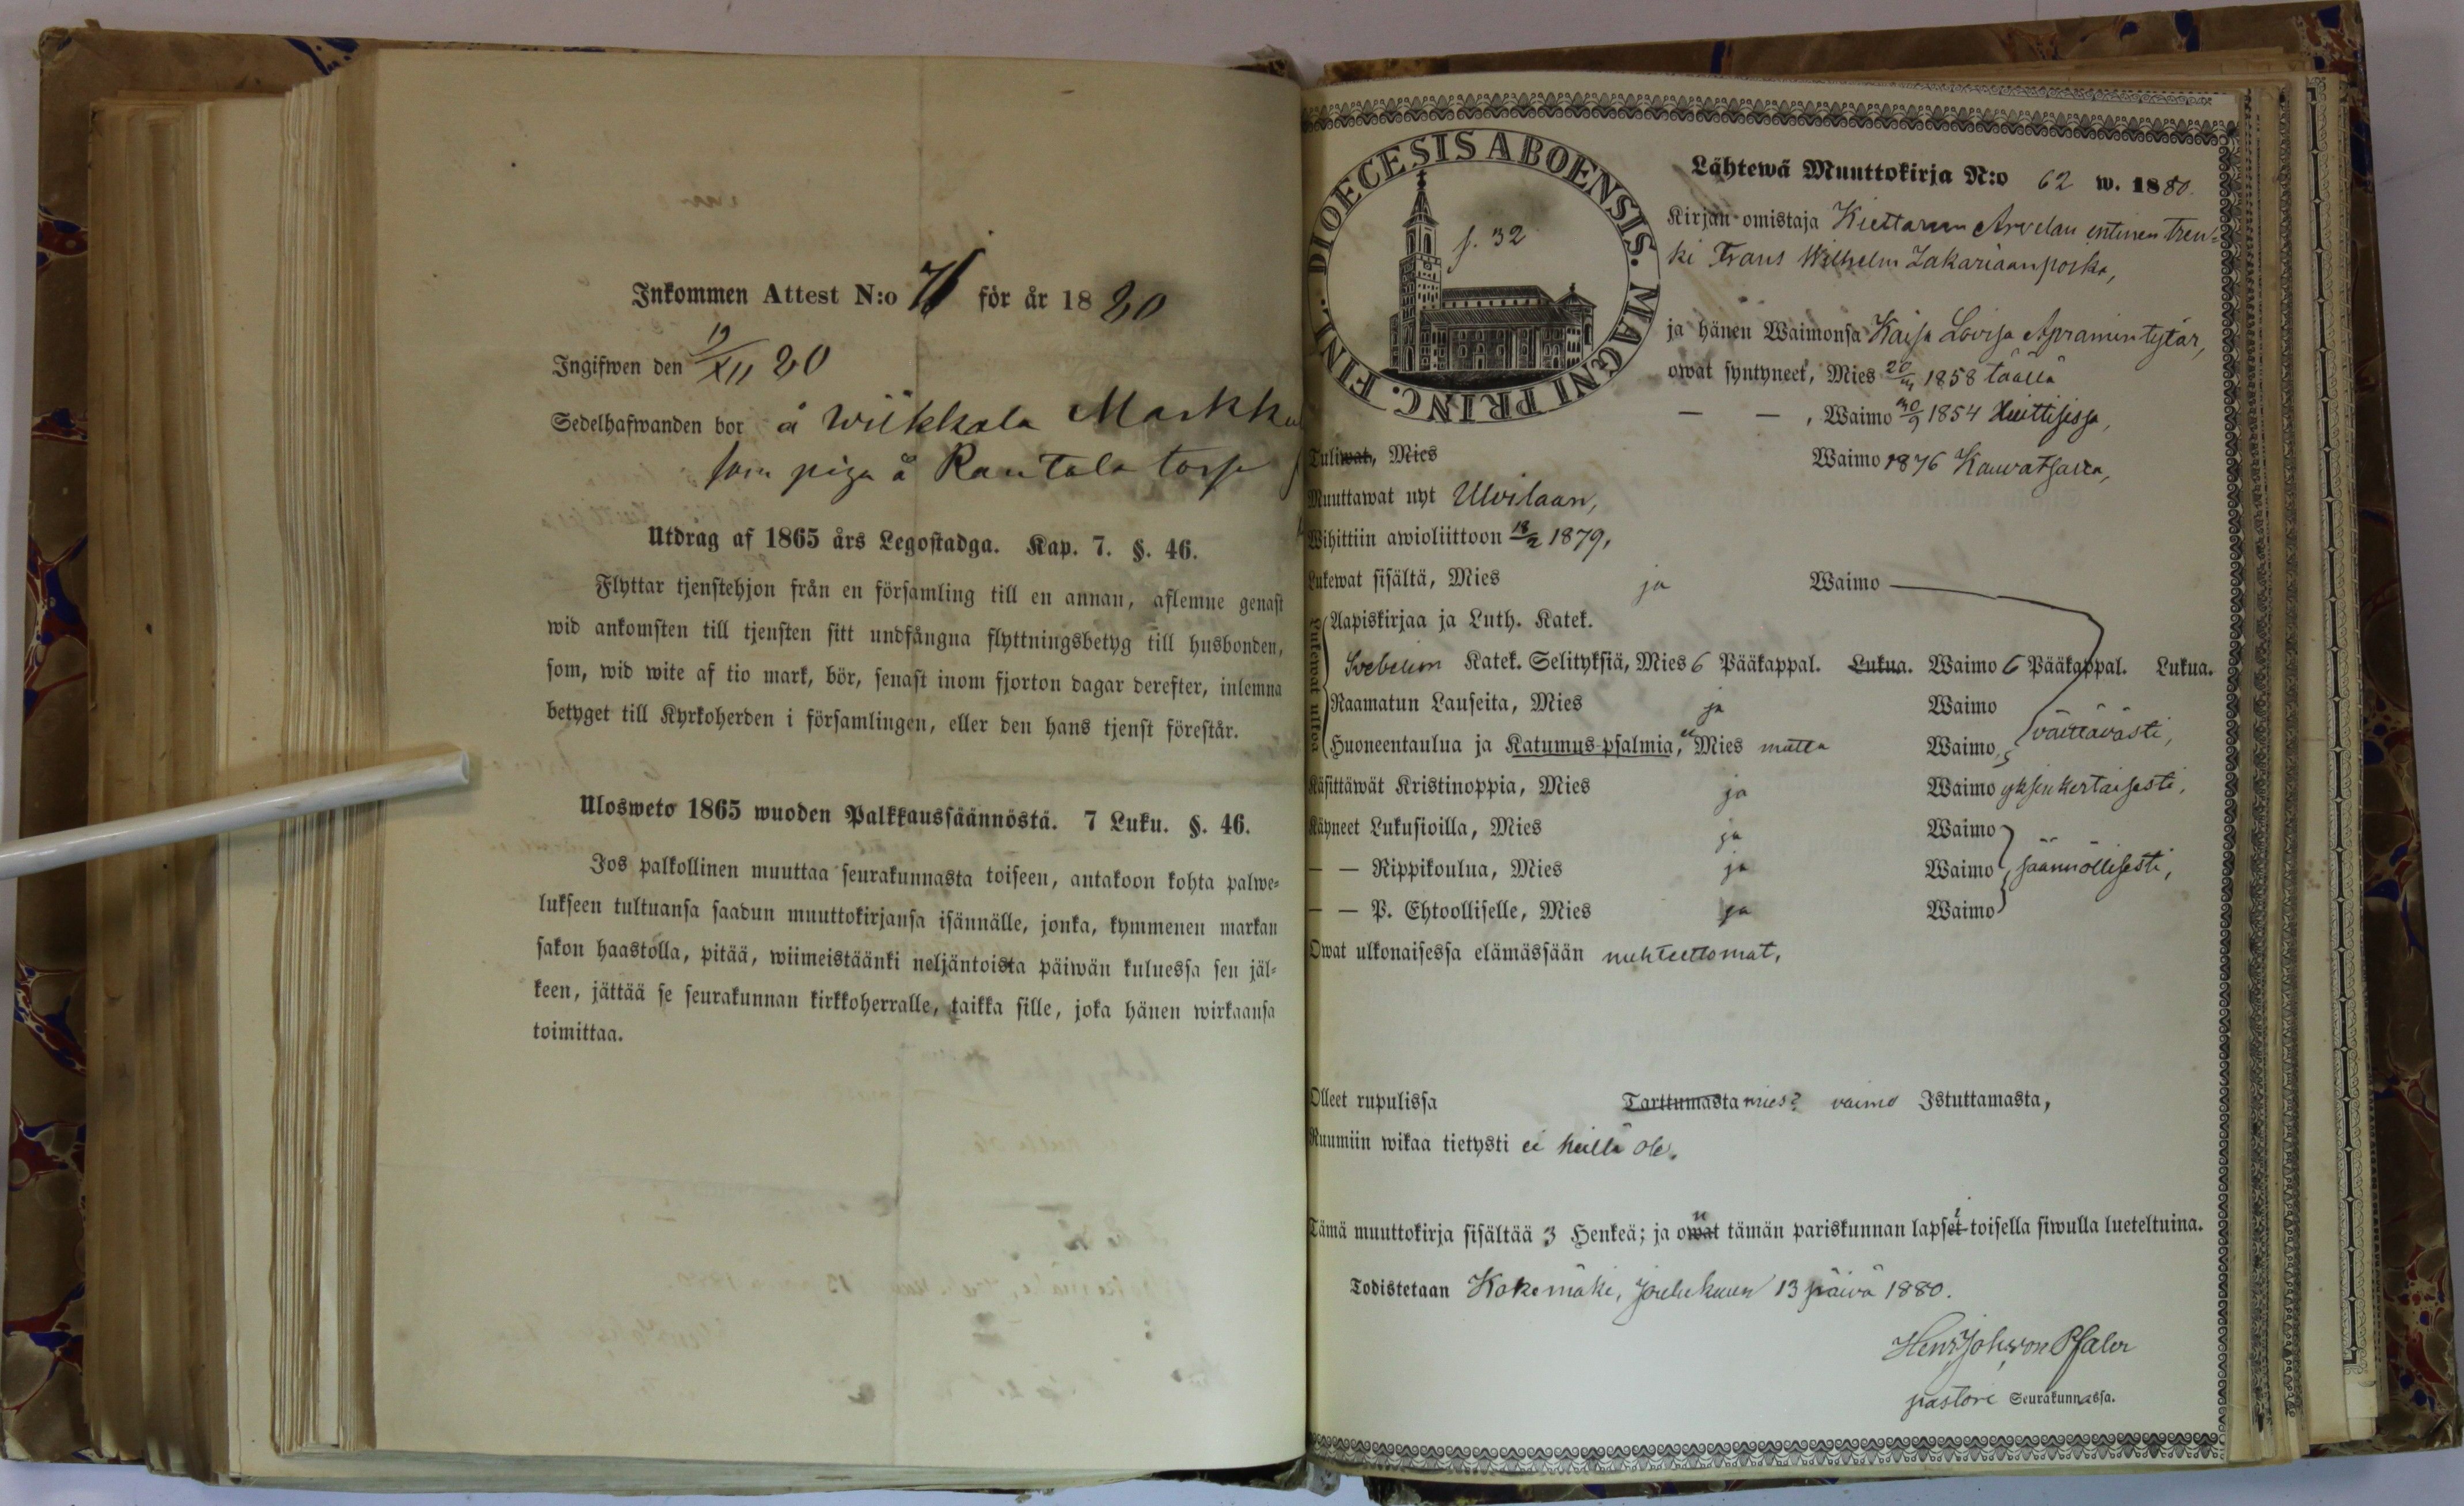 Inkommen Attest N:o 76 för år 1880
Ingifwen den 19/XII 80
Sedelhafwanden bor å Wiikkala Markku
som piga å Rautala torp
Utdrag af 1865 års Legostadga. Kap. 7. §. 46.
Flyttar tjenstehjon från en församling till en annan, aflemne genast
wid ankomsten till tjensten sitt undfångna flyttningsbetyg till husbonden,
som, wid wite af tio mark, bör, senast inom fjorton dagar derefter, inlemna
betyget till Kyrkoherden i församlingen, eller den hans tjenst förestår.
Ulosweto 1865 wuoden Palkkaussäännöstä. 7 Luku. §. 46.
Jos palkollinen muuttaa seurakunnasta toiseen, antakoon kohta palwe-
lukseen tultuansa saadun muuttokirjansa isännälle, jonka, kymmenen markan
sakon haastolla, pitää, wiimeistäänki neljäntoista päiwän kuluessa sen jäl-
keen, jättää se seurakunnan kirkkoherralle, taikka sille, joka hänen wirkaansa
toimittaa.
DIOECESIS ABOENSIS. MAGNI PRINC. FINL.
s. 32
Lähtewä Muuttokirja N:o 62 w. 1880.
Kirjan omistaja Kiettaren Arvelan entinen tren-
ki Frans Wilhelm Zakariaanpoika,
ja hänen Waimonsa Kaisa Lovisa Apramintytär,
owat syntyneet, Mies 20/ 1858 täällä
— — , Waimo 30/9 1854 Huittisissa,
Tuliwat, Mies Waimo 1876 Kauvatsalta,
Muuttawat nyt Ulvilaan,
Wihittiin awioliittoon 18/2 1879,
Lukewat sisältä, Mies ja Waimo
Lukewat ulkoa
Aapiskirjaa ja Luth. Katek.
Svebelion Katek. Selityksiä, Mies 6 Pääkappal. Lukua. Waimo 6 Pääkappal. Lukua.
Raamatun Lauseita, Mies ja Waimo
Huoneentaulua ja Katumus-psalmia, ei Mies mutta Waimo, välttävästi,
Käsittäwät Kristinoppia, Mies ja Waimo yksinkertaisesti,
Käyneet Lukusioilla, Mies ja Waimo
— — Rippikoulua, Mies ja Waimo säännöllisesti,
— — P. Ehtoolliselle, Mies ja Waimo
Owat ulkonaisessa elämässään nuhteettomat,
Olleet rupulissa Tarttumasta mies? vaimo Istuttamasta,
Ruumiin wikaa tietysti ei heillä ole.
Tämä muuttokirja sisältää 3 Henkeä; ja owat n tämän pariskunnan lapset i toisella siwulla lueteltuina.
Todistetaan Kokemäki, Joulukuun 13 päivä 1880.
Henr Joh von Pfaler
pastori Seurakunnassa.